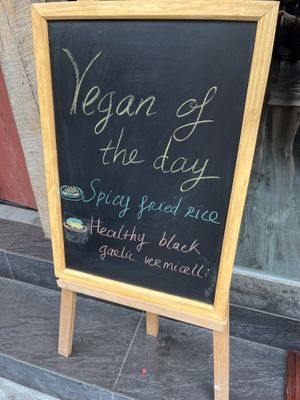 Vegan of
the day
Spicy fried rice
Healthy black
garlic vermicelli